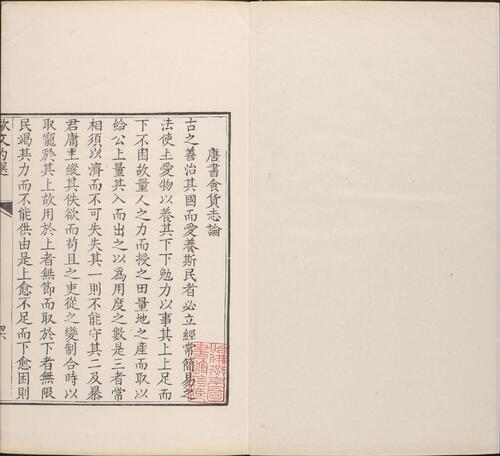 唐書食貨志論
古之善治其國而愛養斯民者必立經常簡易之
法使上愛物以養其下下勉力以事其上上足而
下不困故量人之力而授之田量地之產而取以
給公上量其入而出之以為用度之數是三者常
相須以濟而不可失失其一則不能守其二及暴
君庸主縱其佚欲而苟且之吏從之變制合時以
取寵於其上故用於上者無節而取於下者無限
民竭其力而不能供由是上愈不足而下愈困則
歐文約選